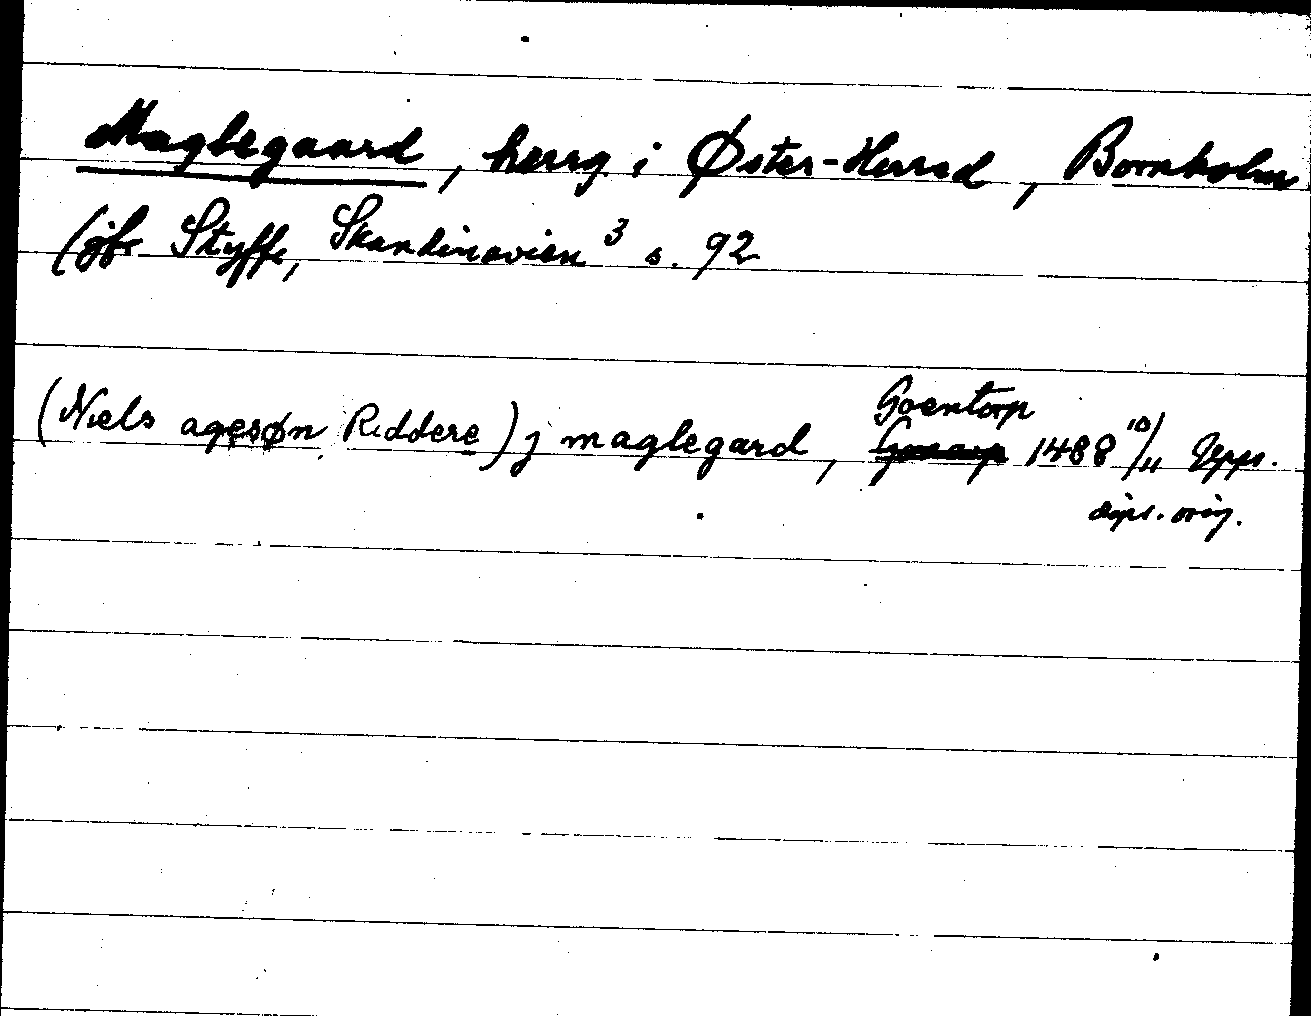 Maglegaard, herrg. i Øster-Herred, Bornholm
(jfr Styffe, Skandinavien³ s. 92
Goentorp
(Niels agesøn Riddere) j maglegard, 1488 10/11 Upps.
dipl. orig.